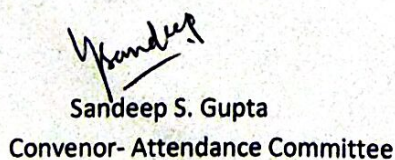 Sandeep S. Gupta
Convenor- Attendance Committee